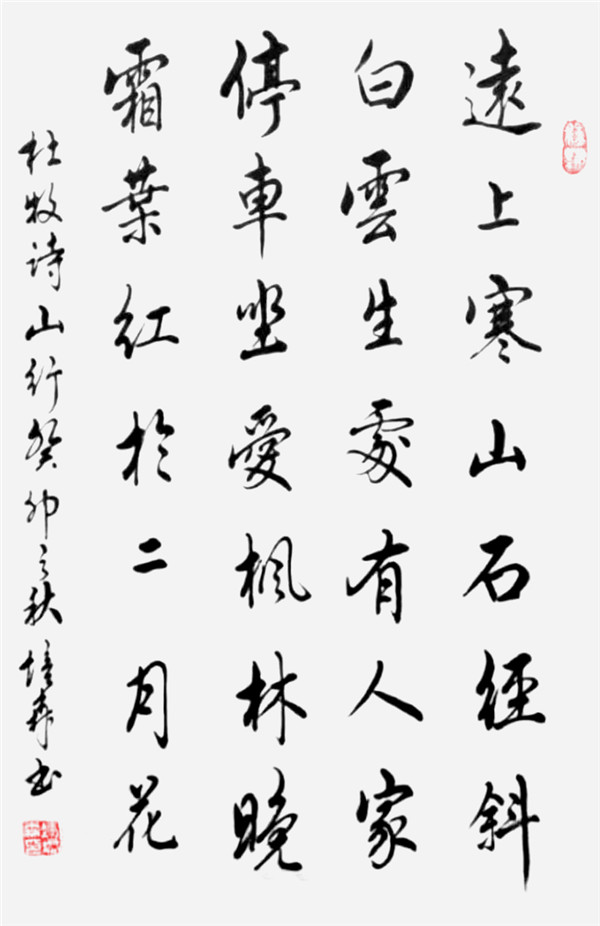 遠上寒山石經斜
白雲生處有人家
停車坐愛楓林晚
霜葉紅於二月花
杜牧诗山行癸卯之秋培森书